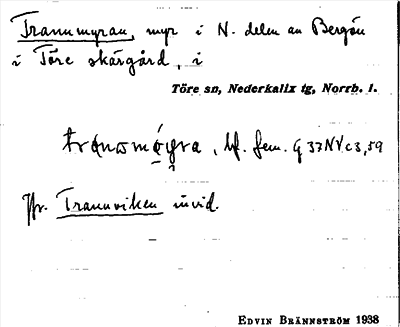 Trannmyran, myr i N. delen av Bergön
i Töre skärgård, i
Töre sn, Nederkalix tg, Norrb. l.
, bf. fem. G 37NVc3,59
Jfr. Trannviken invid.
EDVIN BRÄNNSTRÖM 1938